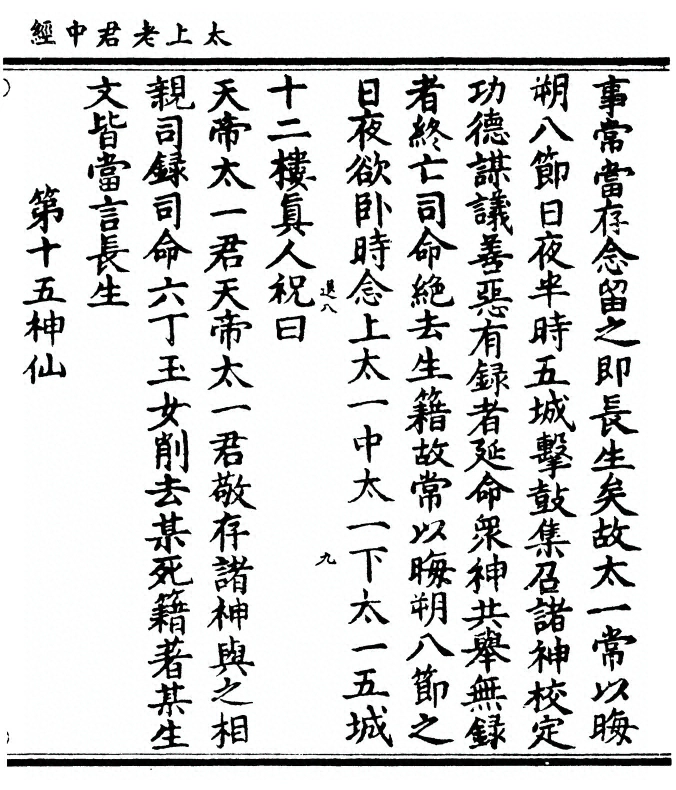 太上老君中經
事常當存念留之即長生矣故太一常以晦
朔八節日夜半時五城擊鼓集召諸神校定
功德謀議善惡有録者延命衆神共舉無録
者終亡司命絶去生籍故常以晦朔八節之
日夜欲卧時念上太一中太一下太一五城
十二樓眞人祝曰
退八
九
天帝太一君天帝太一君敬存諸神與之相
親司録司命六丁玉女削去某死籍著某生
文皆當言長生
第十五神仙